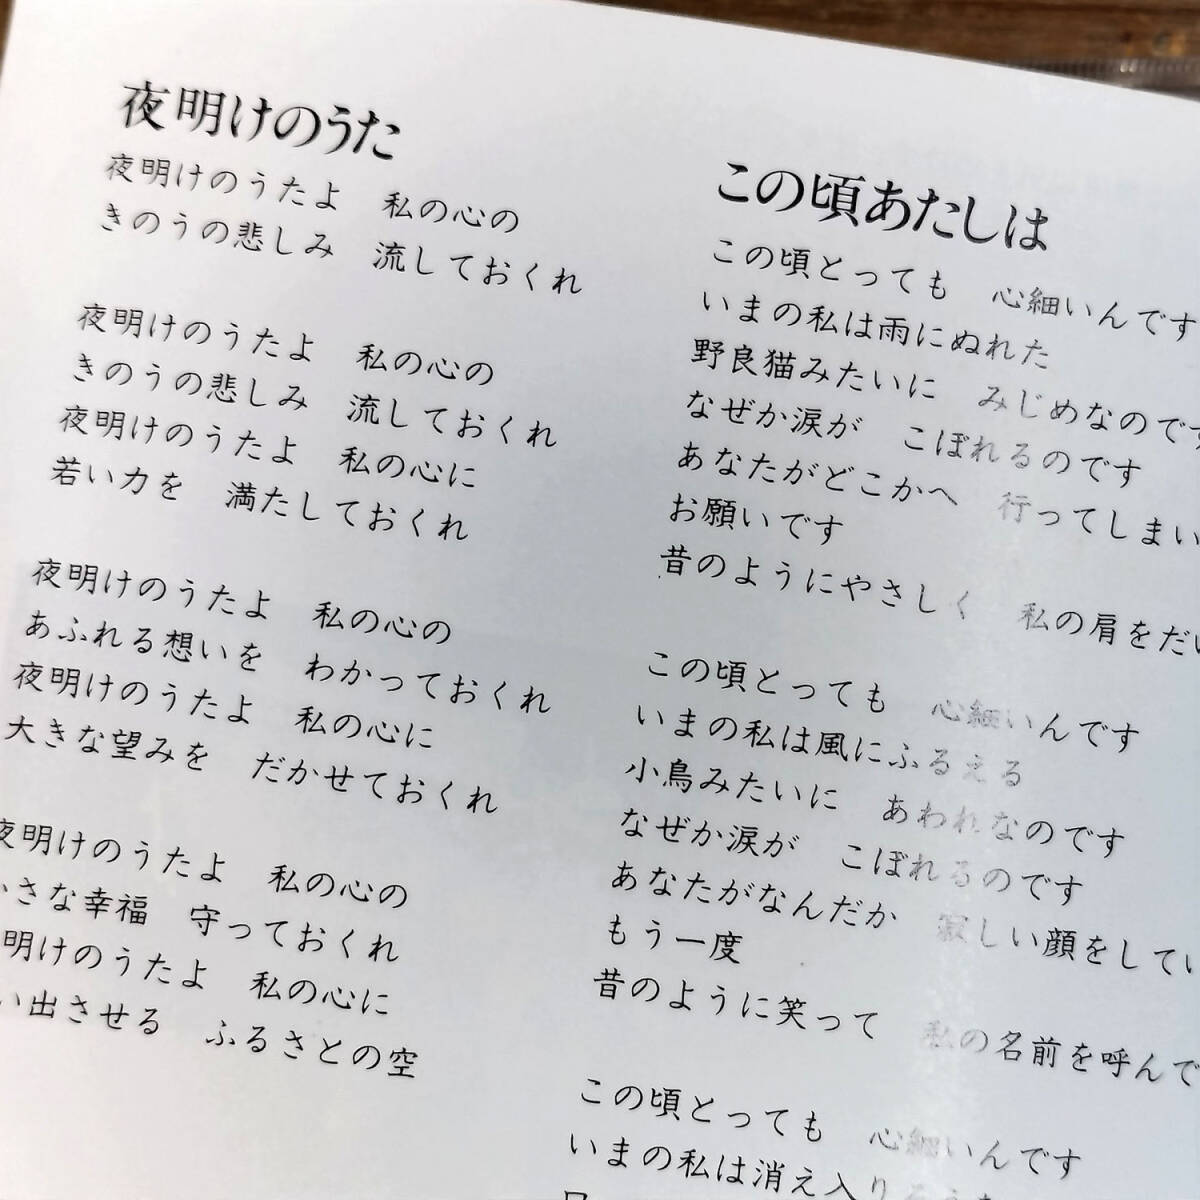 夜明けのうた
夜明けのうたよ　私の心の
きのうの悲しみ　流しておくれ
夜明けのうたよ　私の心の
きのうの悲しみ　流しておくれ
夜明けのうたよ　私の心に
若い力を　満たしておくれ
夜明けのうたよ　私の心の
あふれる想いを　わかっておくれ
夜明けのうたよ　私の心に
大きな望みを　だかせておくれ
夜明けのうたよ　私の心の
さな幸福　守っておくれ
明けのうたよ　私の心に
い出させる　ふるさとの空
この頃あたしは
この頃とっても　心細いんです
いまの私は雨にぬれた
野良猫みたいに　みじめなのです
なぜか涙が　こぼれるのです
あなたがどこかへ　行ってしまい
お願いです
昔のようにやさしく　私の肩をだい
この頃とっても　心細いんです
いまの私は風にふるえる
小鳥みたいに　あわれなのです
なぜか涙が　こぼれるのです
あなたがなんだか　寂しい顔をしてい
もう一度
昔のように笑って　私の名前を呼んで
この頃とっても　心細いんです
いまの私は消え入り